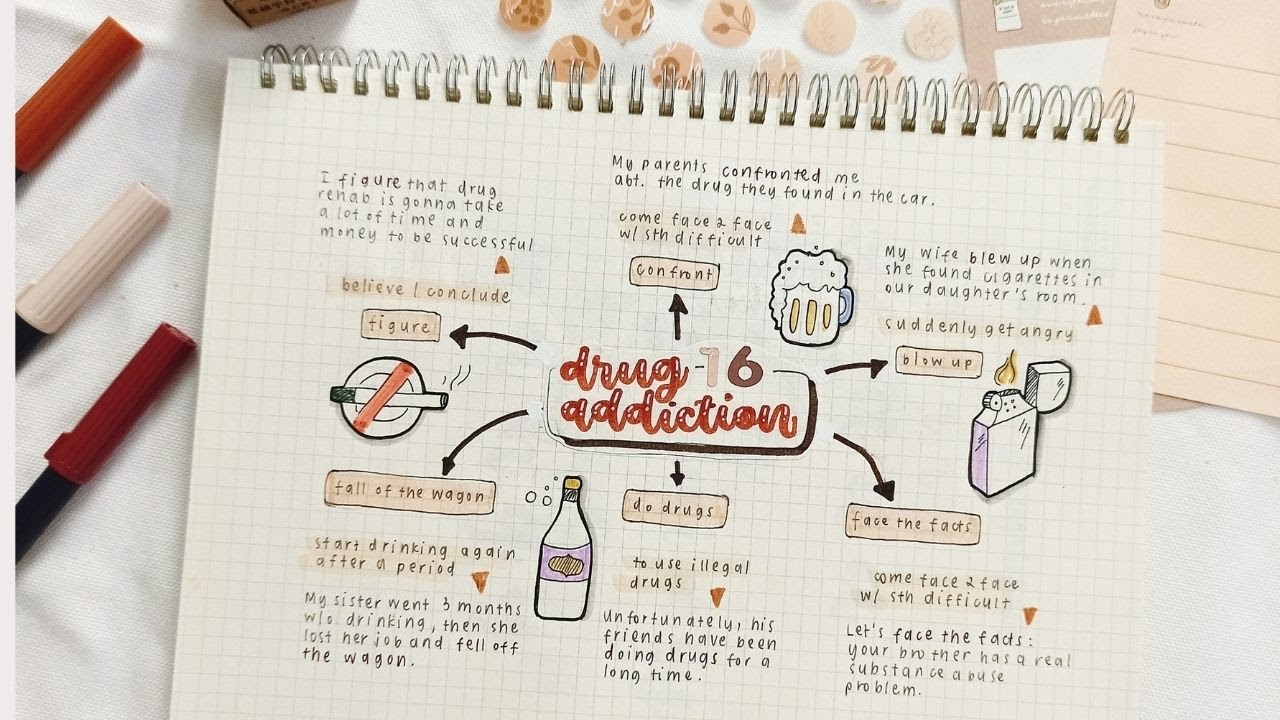 I figure that drug
rehab is gonna take
a lot of time and
money to be successful
believe / conclude
figure
My parents confronted me
abt. the drug they found in the car.
come face 2 face
w/ sth difficult
confront
My wife blew up when
she found cigarettes in
our daughter's room.
suddenly get angry
blow up
drug -16
addiction
fall of the wagon
start drinking again
after a period
My sister went 3 months
w/o drinking, then she
lost her job and fell off
the wagon.
do drugs
to use illegal
drugs
Unfortunately, his
friends have been
doing drugs for a
long time.
face the facts
come face 2 face
w/ sth difficult
Let's face the facts:
your brother has a real
substance abuse
problem.